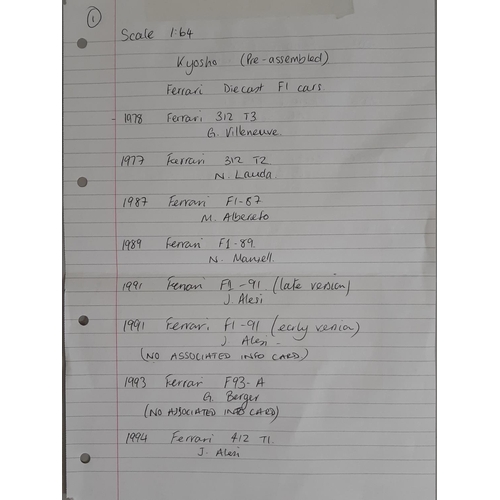 1
Scale 1:64
Kyosho (Pre-assembled)
Ferrari Diecast F1 cars
- 1978 Ferrari 312 T3
G. Villeneuve.
1977 Ferrari 312 T2
N. Lauda
1987 Ferrari F1-87
M. Alboreto
1989 Ferrari F1-89
N. Mansell.
1991 Ferrari F1-91 (late version)
J Alesi
1991 Ferrari. F1-91 (early version)
J Alesi -
(NO ASSOCIATED INFO CARD.)
1993 Ferrari F93-A
G. Berger
(NO ASSOCIATED INFO CARD)
1994 Ferrari 412 T1.
J. Alesi